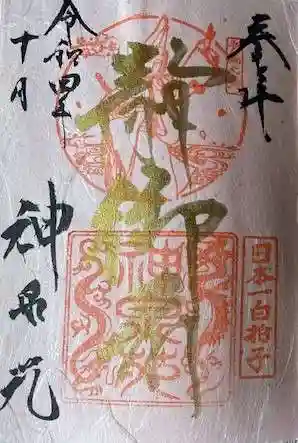 奉拝
日本一白拍子
静御前
令和四年
十月
神泉苑